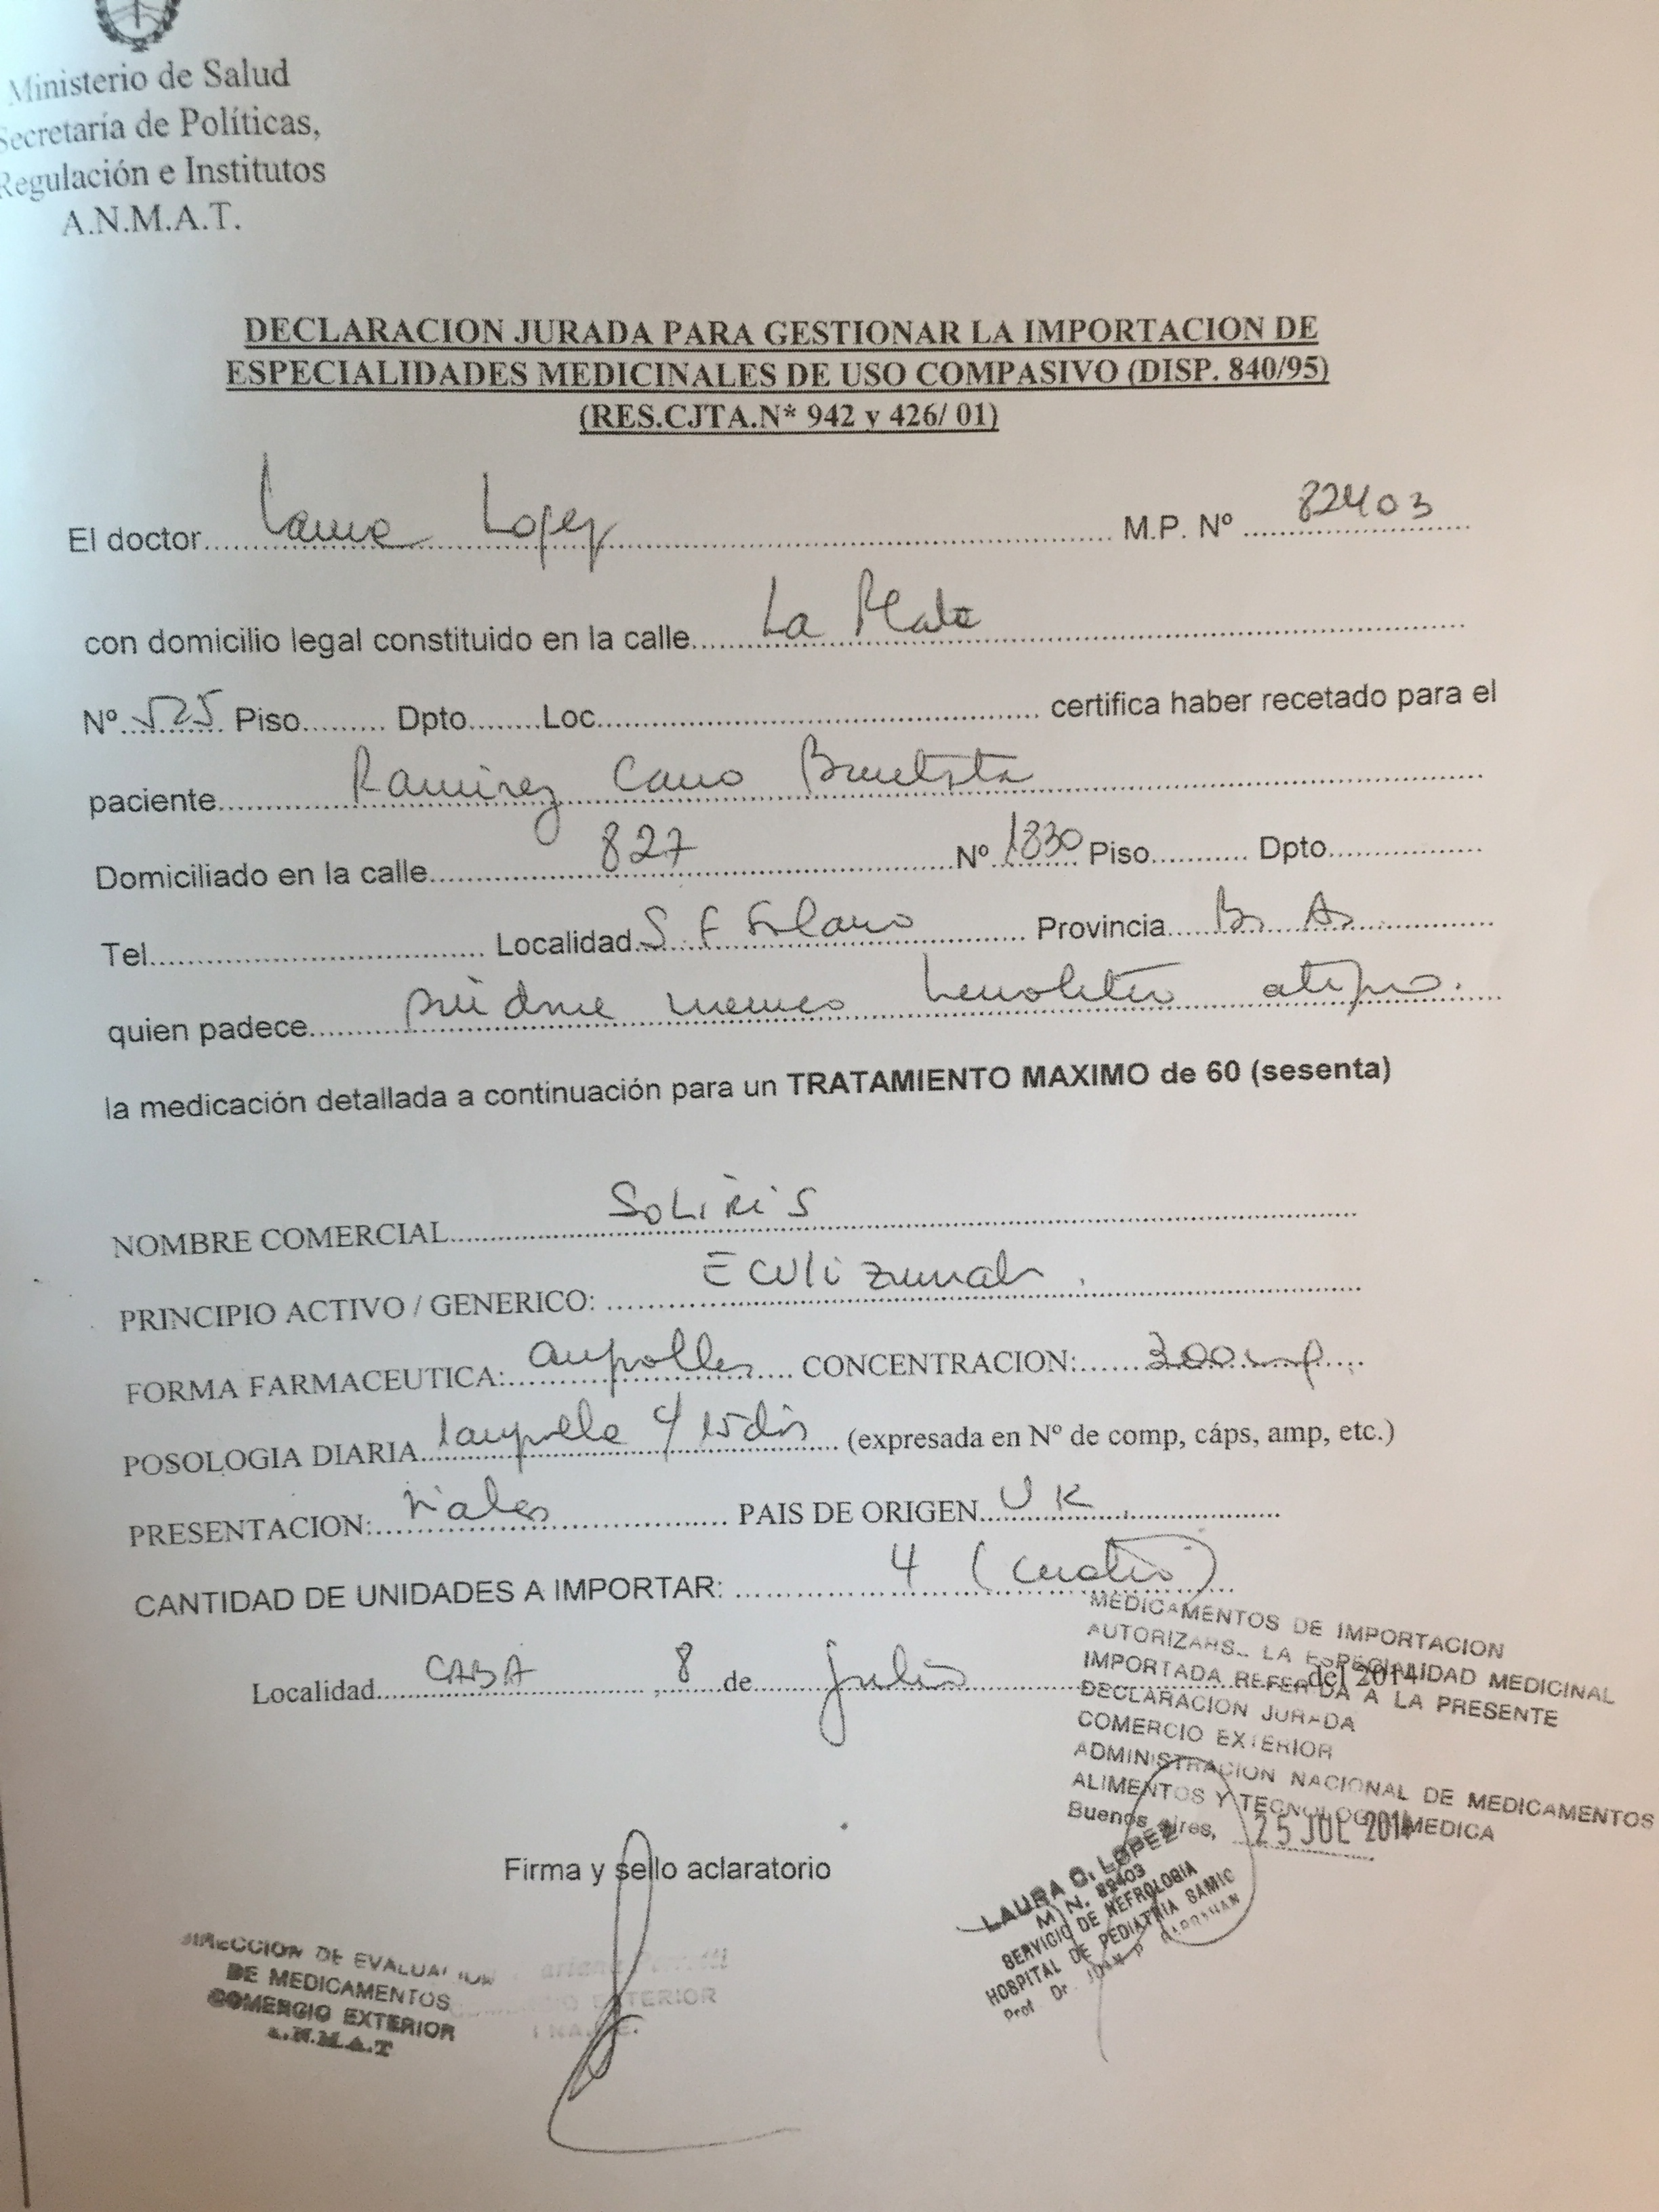 Ministerio de Salud
Secretaría de Políticas,
Regulación e Institutos
A.N.M.A.T.
DECLARACION JURADA PARA GESTIONAR LA IMPORTACION DE
ESPECIALIDADES MEDICINALES DE USO COMPASIVO (DISP. 840/95)
(RES.CJTA.N* 942 y 426/ 01)
El doctor Laura Lopez M.P. Nº 82403
con domicilio legal constituido en la calle La Plata
Nº 525 Piso Dpto Loc certifica haber recetado para el
paciente Ramirez Cano Bautista
Domiciliado en la calle 827 Nº 1830 Piso Dpto
Tel Localidad S F Solano Provincia Bs As
quien padece sindrome uremico hemolitico atipico.
la medicación detallada a continuación para un TRATAMIENTO MAXIMO de 60 (sesenta)
NOMBRE COMERCIAL SoLiRiS
PRINCIPIO ACTIVO / GENERICO: ECULizumab.
FORMA FARMACEUTICA: ampollas CONCENTRACION: 300 mg
POSOLOGIA DIARIA 1 ampolla c/ 15 dias (expresada en Nº de comp, cáps, amp, etc.)
PRESENTACION: viales PAIS DE ORIGEN UK
CANTIDAD DE UNIDADES A IMPORTAR: 4 (cuatro)
Localidad CABA, 8 de julio del 2014
MEDICAMENTOS DE IMPORTACION
AUTORIZARS LA ESPECIALIDAD MEDICINAL
IMPORTADA REFERIDA A LA PRESENTE
DECLARACION JURADA
COMERCIO EXTERIOR
ADMINISTRACION NACIONAL DE MEDICAMENTOS
ALIMENTOS Y TECNOLOGIA MEDICA
Buenos Aires, 25 JUL 2014
Firma y sello aclaratorio
LAURA O. LOPEZ
M.N. 82403
SERVICIO DE NEFROLOGIA
HOSPITAL DE PEDIATRIA SAMIC
Prof. Dr. JUAN P. GARRAHAN
DIRECCION DE EVALUACION
DE MEDICAMENTOS
COMERCIO EXTERIOR
A.N.M.A.T
EXTERIOR